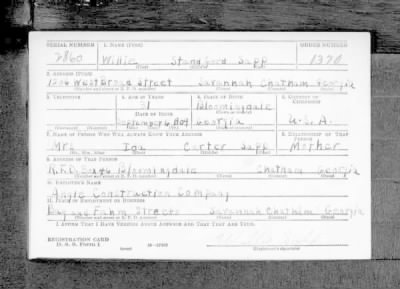 SERIAL NUMBER 1. NAME (Print) ORDER NUMBER
2860 Willie Standford Sapp 1370
(First) (Middle) (Last)
2. ADDRESS (Print)
West Broad Street Savannah Chatham Georgia
(Number and street or R. F. D. number) (Town) (County) (State)
3. TELEPHONE 4. AGE IN YEARS 5. PLACE OF BIRTH 6. COUNTRY OF CITIZENSHIP
31 Bloomingdale
DATE OF BIRTH
September 6 Georgia U.S.A.
7. NAME OF PERSON WHO WILL ALWAYS KNOW YOUR ADDRESS 8. RELATIONSHIP OF THAT PERSON
Mrs Ida Carter Sapp Mother
(Mr., Mrs., Miss) (First) (Middle) (Last)
9. ADDRESS OF THAT PERSON
R.F.D. Bloomingdale Chatham Georgia
(Number and street or R. F. D. number) (Town) (County) (State)
10. EMPLOYER'S NAME
Angle Construction Company
11. PLACE OF EMPLOYMENT OR BUSINESS
Streets Savannah Chatham Georgia
(Number and street or R. F. D. number) (Town) (County) (State)
I AFFIRM THAT I HAVE VERIFIED ABOVE ANSWERS AND THAT THEY ARE TRUE.
REGISTRATION CARD
D. S. S. Form 1
(Registrant's signature)